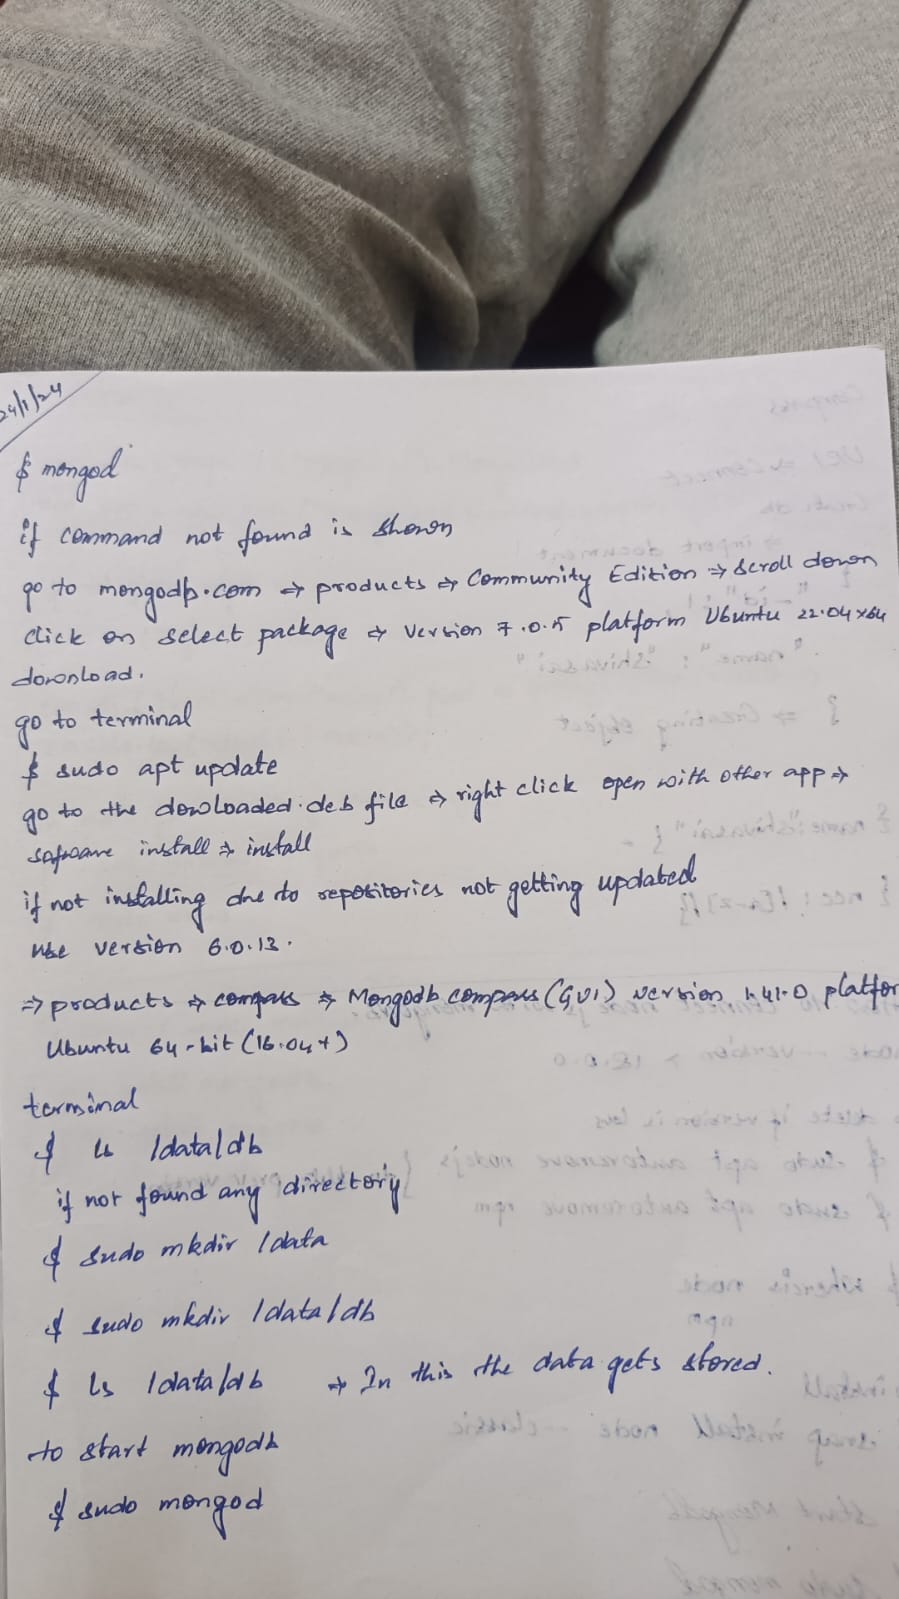 24/1/24
$ mongod
if command not found is shown
go to mongodb.com => products => Community Edition => scroll down
click on select package => version 7.0.5 platform Ubuntu 22.04 x64
download.
go to terminal
$ sudo apt update
go to the dowloaded .deb file => right click open with other app =>
sofware install => install
if not installing due to repositories not getting updated
use version 6.0.13.
=> products => compass => Mongodb compass (GUI) version 1.41.0 platfor
Ubuntu 64-bit (16.04+)
terminal
$ ls /data/db
if not found any directory
$ sudo mkdir /data
$ sudo mkdir /data/db
$ ls /data/db => In this the data gets stored.
to start mongodb
$ sudo mongod